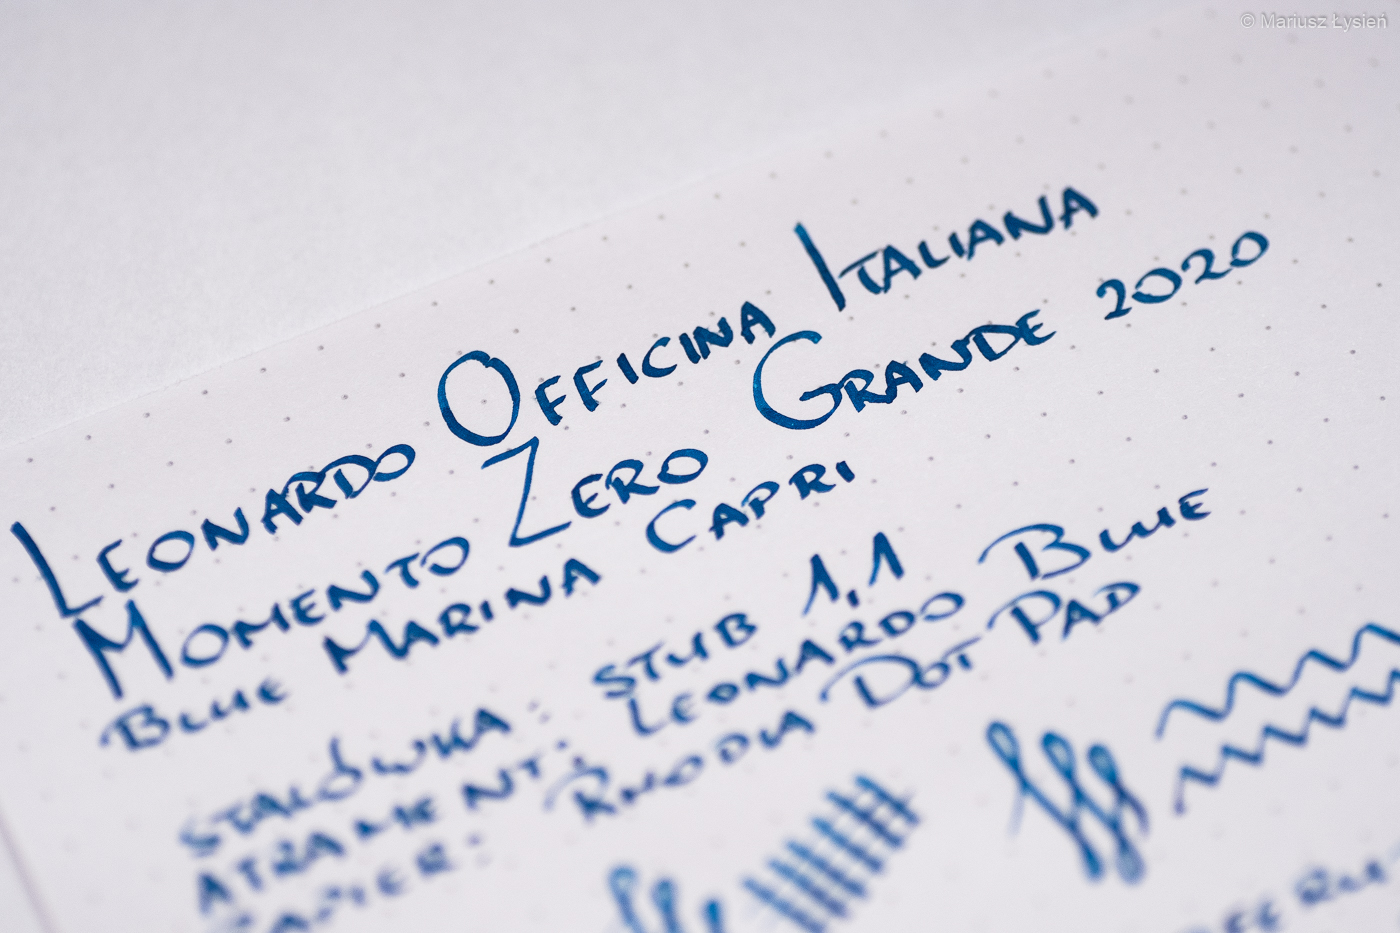 © Mariusz Łysień
Leonardo Officina Italiana
Momento Zero Grande 2020
Blue Marina Capri
Stalówka: Stub 1,1
Atrament: Leonardo Blue
Papier: Rhodia Dot Pad